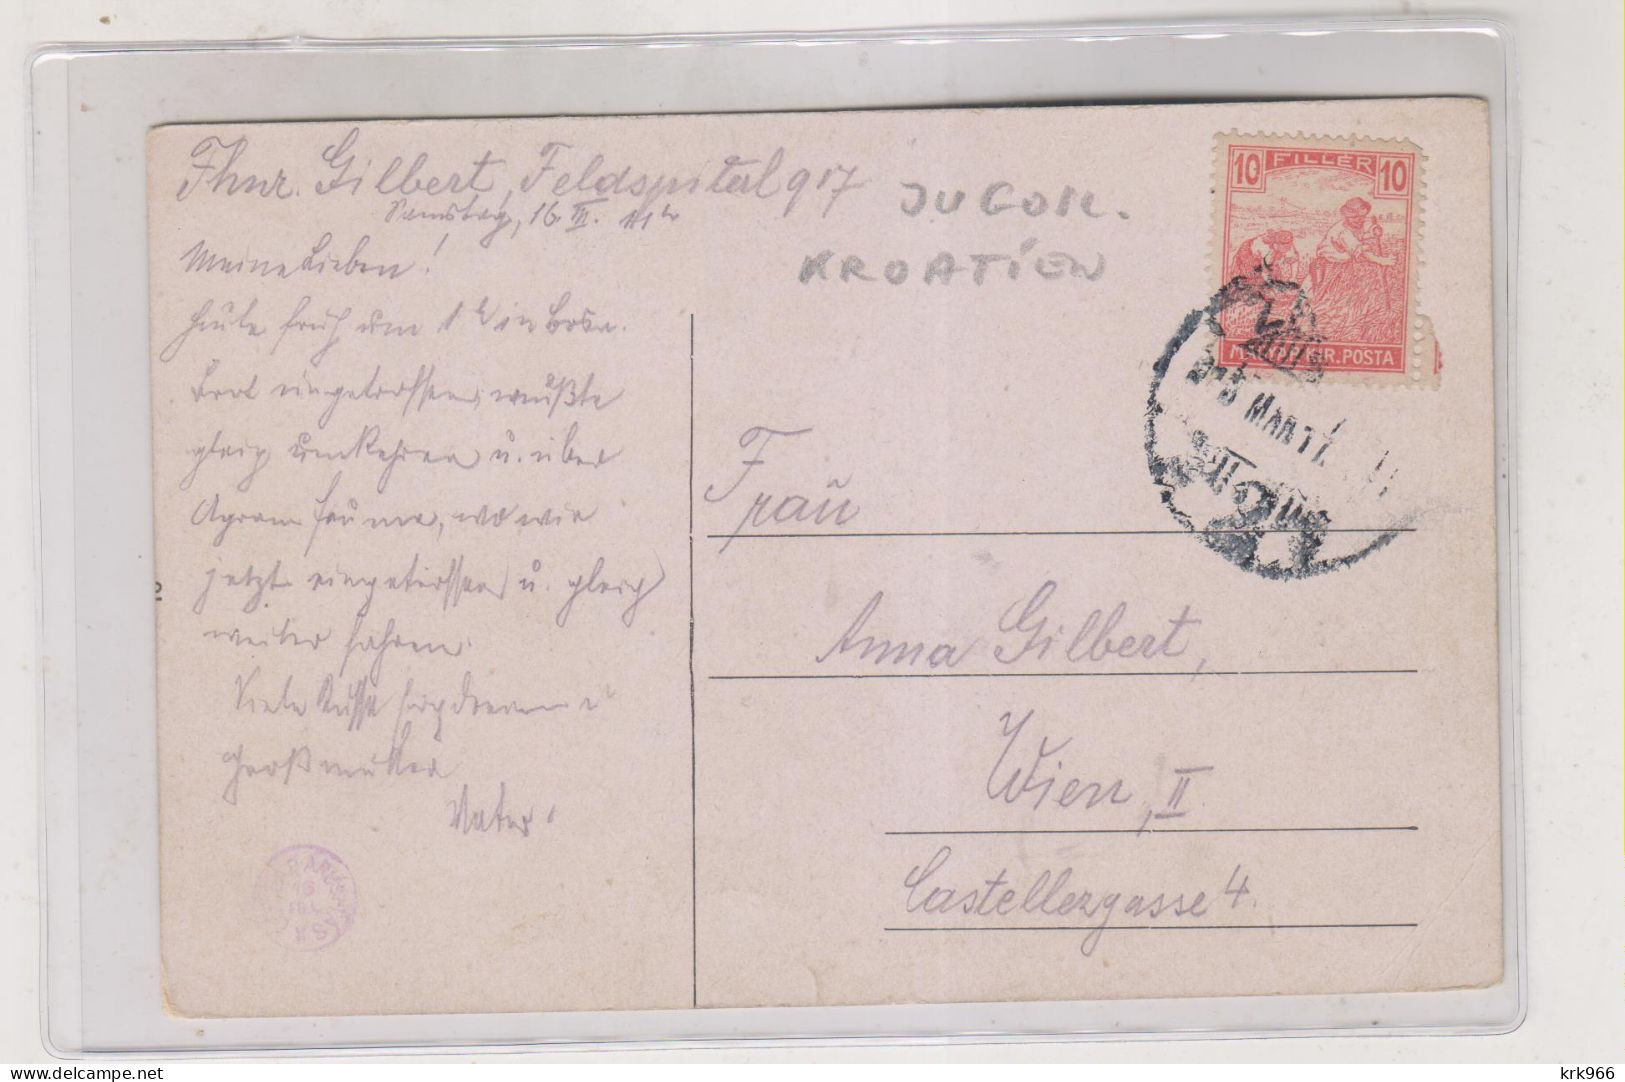 Fhnr. Gilbert, Feldspital 917
Samstag, 16. III. 11h
Meine Lieben!
Heute früh um 1h in Bosn.
Brod eingetroffen, mußte
gleich umkehren u. über
Agram, wo wir
jetzt eingetroffen u. gleich
weiter fahren.
Viele Küsse
Großmutter
Vater.
JUGOSL.
KROATIEN
10 FILLÉR 10
MAGYAR KIR. POSTA
Frau
Anna Gilbert,
Wien, II.
Castellezgasse 4.
krk966